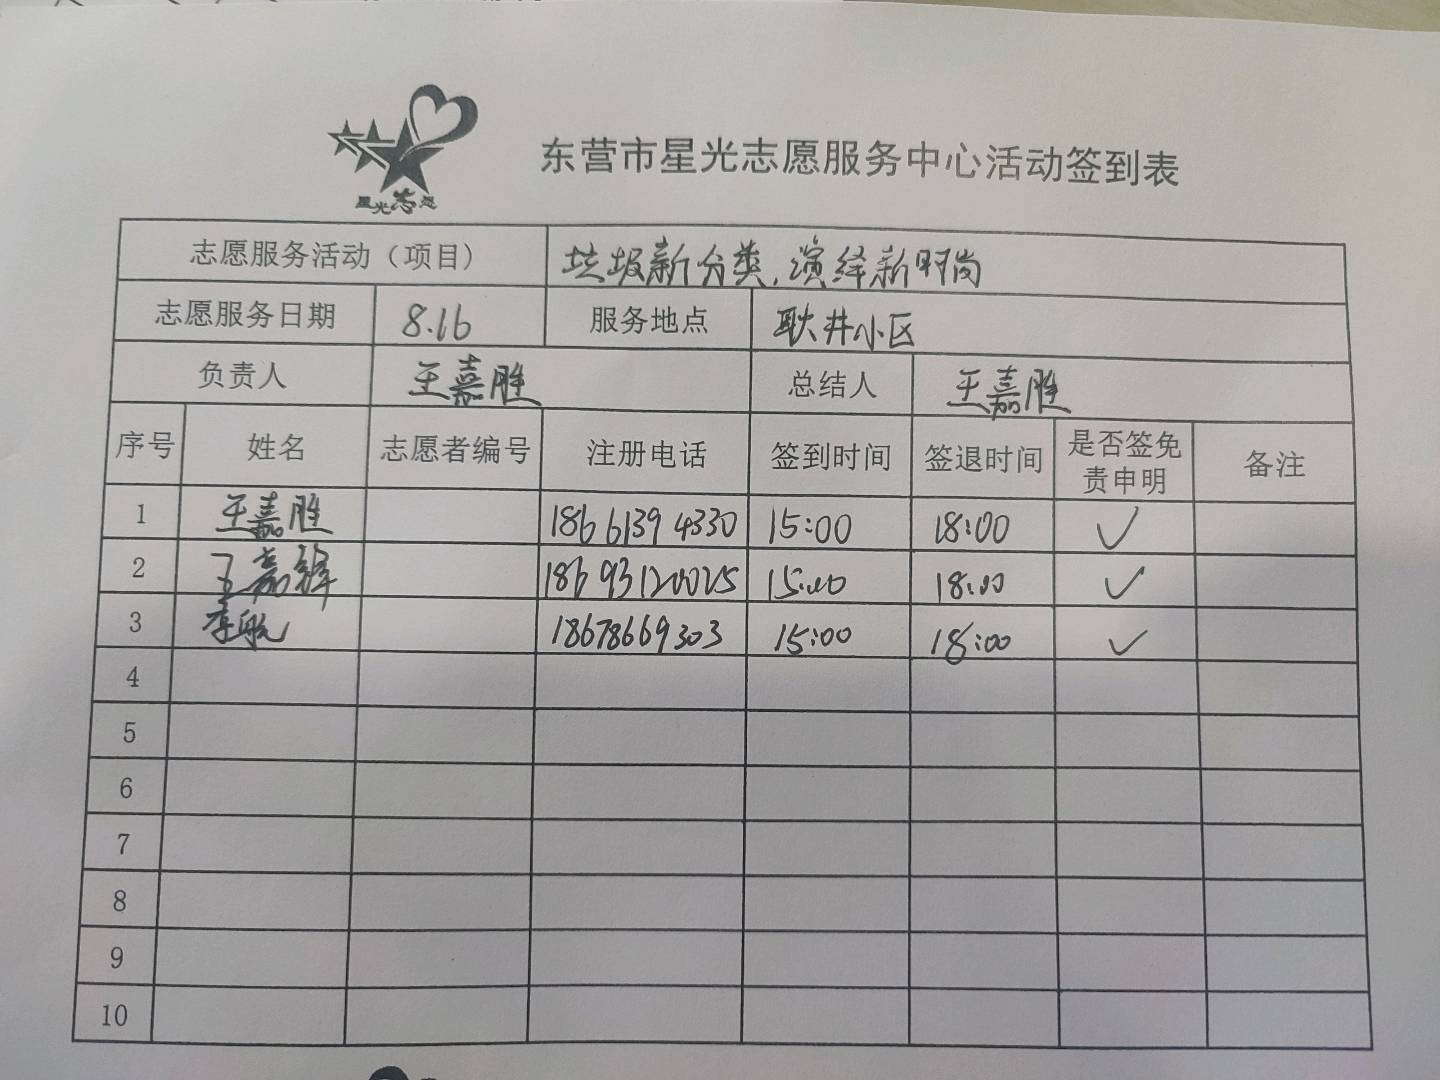 星光志愿
东营市星光志愿服务中心活动签到表
志愿服务活动（项目） 垃圾新分类,演绎新时尚
志愿服务日期 8.16 服务地点 耿井小区
负责人 王嘉胜 总结人 王嘉胜
序号 姓名 志愿者编号 注册电话 签到时间 签退时间 是否签免责申明 备注
1 王嘉胜 18661394330 15:00 18:00 ✓
2 王嘉 18693120025 15:00 18:00 ✓
3 李航 18678669303 15:00 18:00 ✓
4
5
6
7
8
9
10